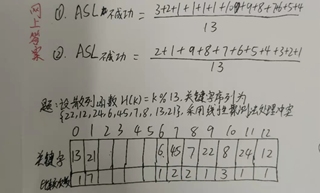 网上答案
①. ASL不成功 = 3+2+1+1+1+1+
+9+8+7+6+5+4
13
②. ASL不成功 = 2+1+9+8+7+6+5+4+3+2+1
13
题:设散列函数H(K)=K%13.关键字序列为
{22,12,24,6,45,7,8,13,21}.采用线性探测法处理冲突
0 1 2 3 4 5 6 7 8 9 10 11 12
关键字 13 21 6 45 7 22 8 24 12
比较次数 1 7 1 2 2 1 3 1 1